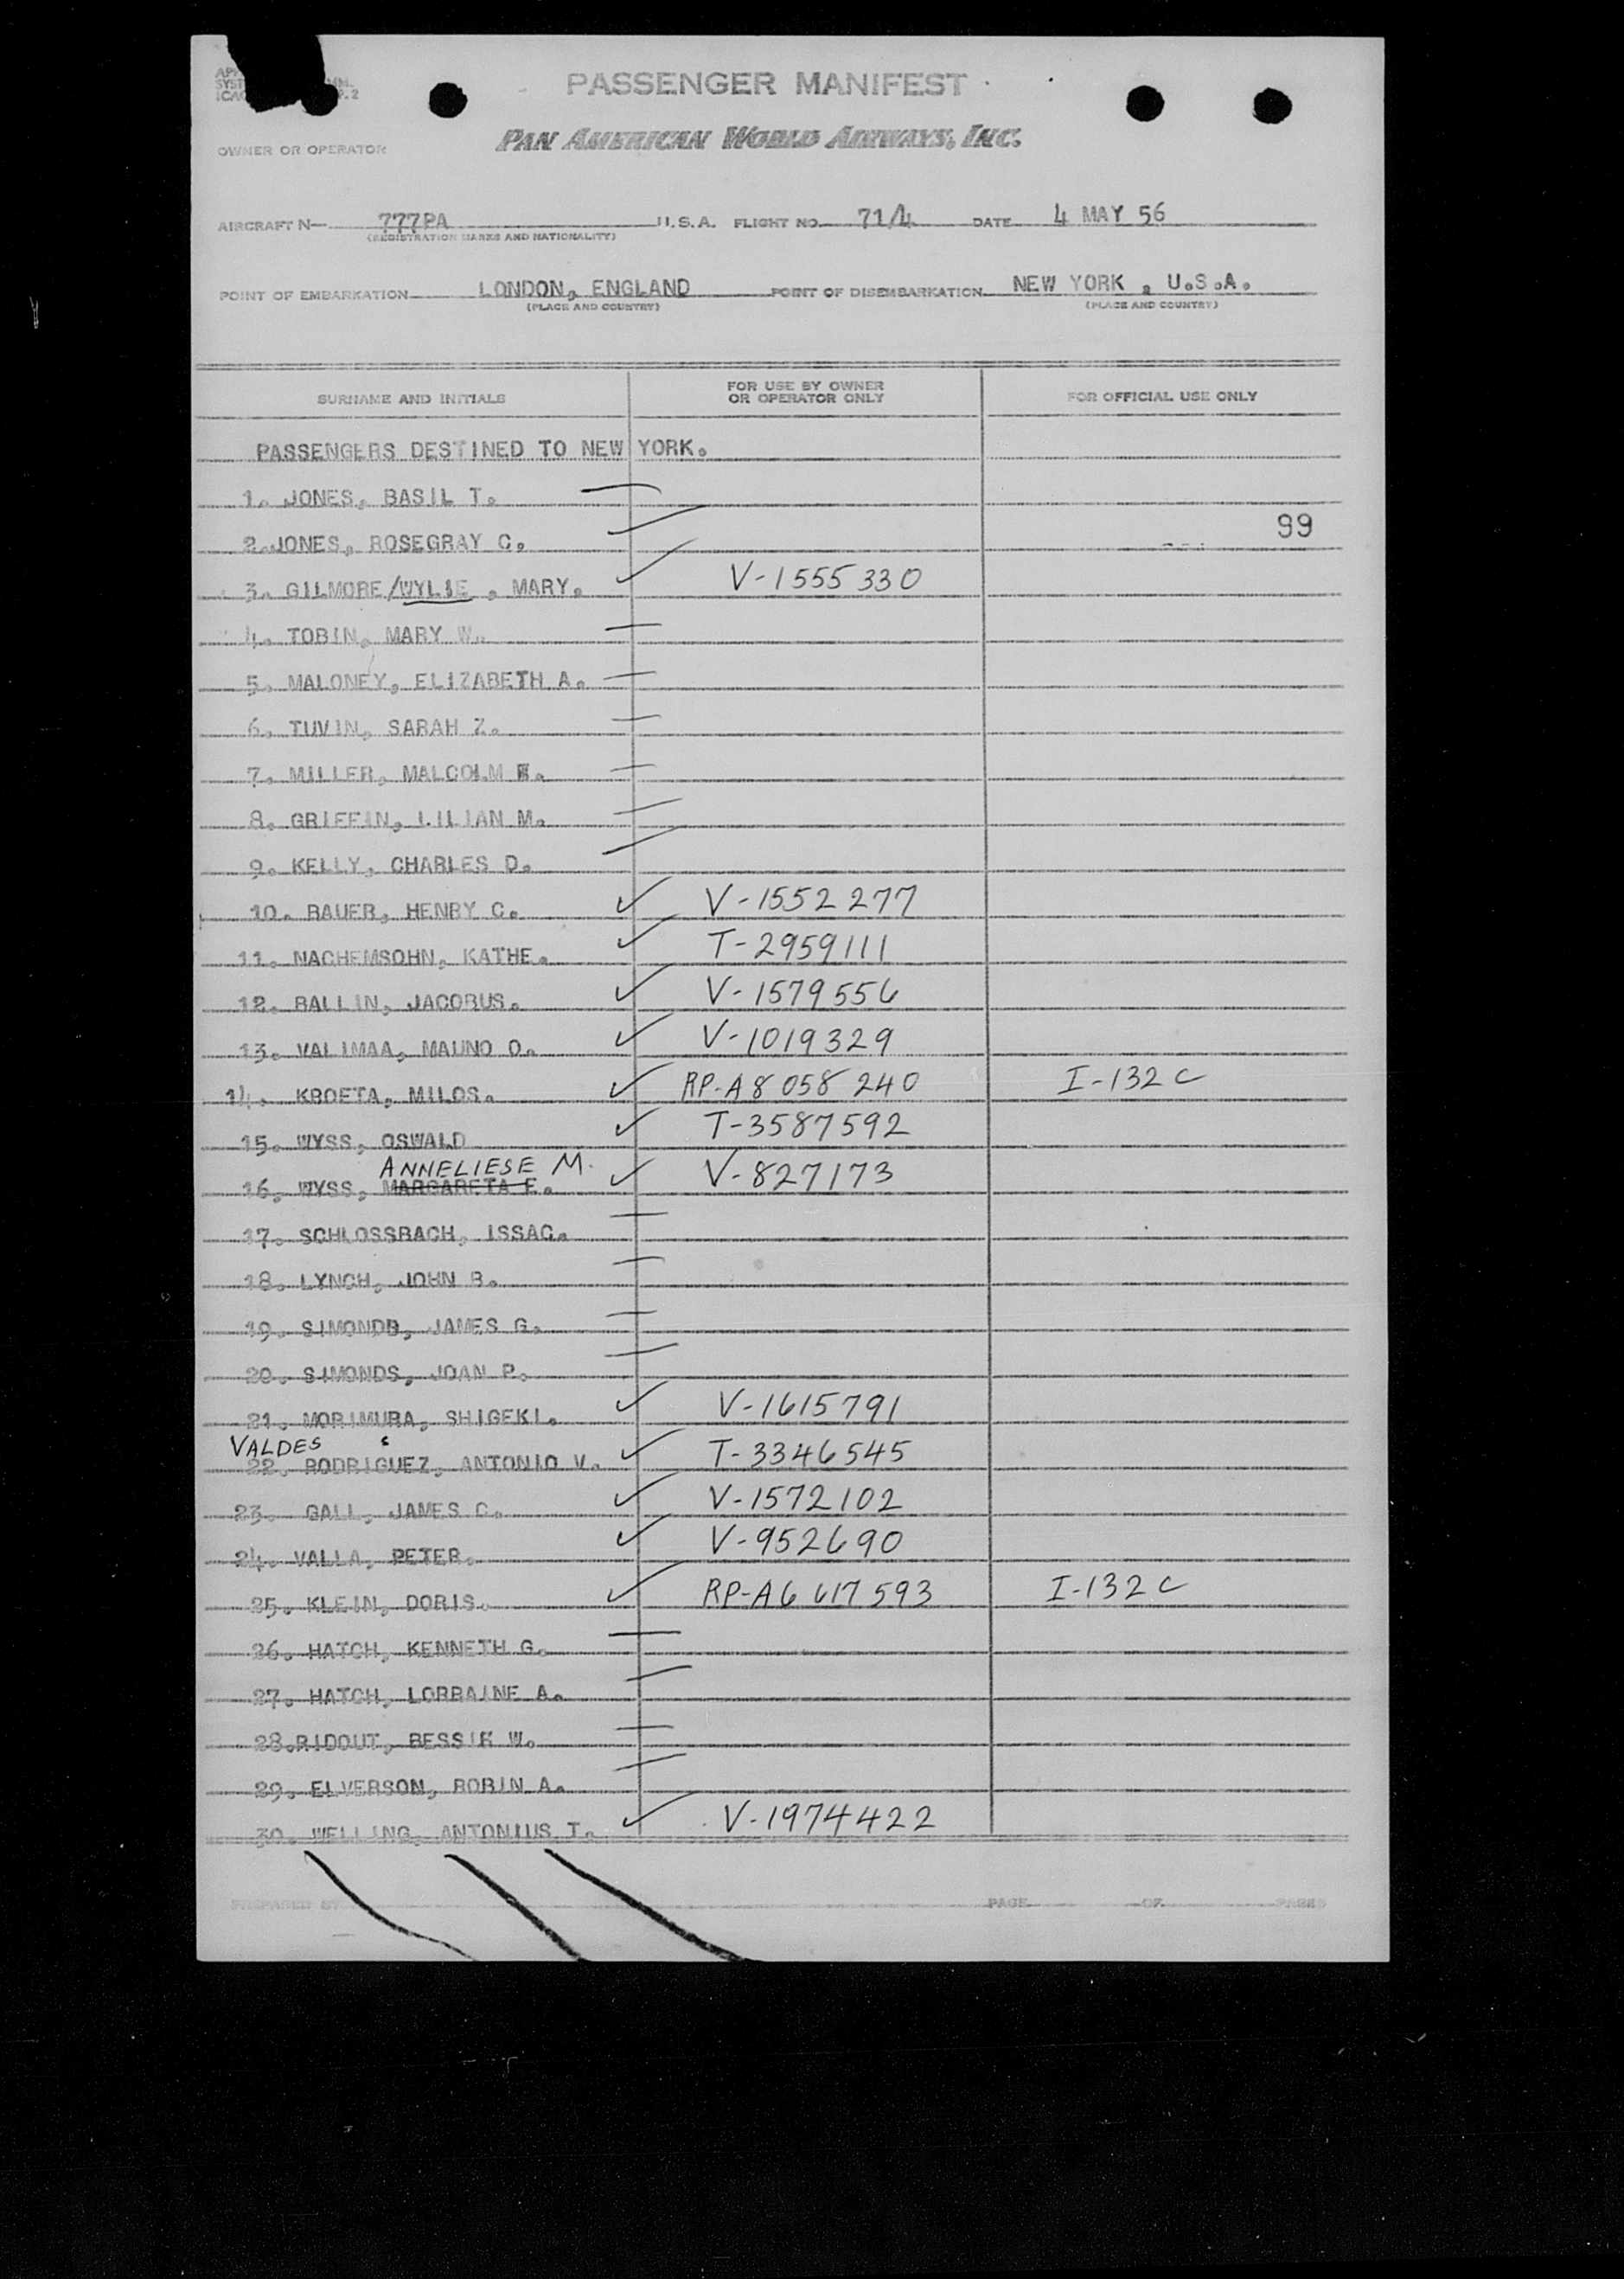 PASSENGER MANIFEST
PAN AMERICAN WORLD AIRWAYS, INC.
OWNER OR OPERATOR
AIRCRAFT N— 777PA U.S.A. FLIGHT NO. 71/4 DATE 4 MAY 56
(REGISTRATION MARKS AND NATIONALITY)
POINT OF EMBARKATION LONDON, ENGLAND POINT OF DISEMBARKATION NEW YORK , U.S.A.
(PLACE AND COUNTRY) (PLACE AND COUNTRY)
SURNAME AND INITIALS FOR USE BY OWNER OR OPERATOR ONLY FOR OFFICIAL USE ONLY
PASSENGERS DESTINED TO NEW YORK.
1. JONES, BASIL T.
99
2.JONES, ROSEGRAY C.
3. GILMORE/WYLIE , MARY. V-1555330
4. TOBIN, MARY W.
5. MALONEY, ELIZABETH A.
6. TUVIN, SARAH Z.
7. MILLER, MALCOLM E.
8. GRIFFIN, LILIAN M.
9. KELLY, CHARLES D.
10. BAUER, HENRY C. V-1552277
11. NACHEMSOHN, KATHE. T-2959111
12. BALLIN, JACOBUS. V-1579556
13. VALIMAA, MAUNO O. V-1019329
14. KROETA, MILOS. RP-A8 058 240 I-132C
15. WYSS, OSWALD T-3587592
ANNELIESE M.
16. WYSS, MARGARETA E. V-827173
17. SCHLOSSBACH, ISSAC.
18. LYNCH, JOHN B.
19. SIMONDB, JAMES G.
20. SIMONDS, JOAN P.
21. MORIMURA, SHIGEKI. V-1615791
VALDES
22. RODRIGUEZ, ANTONIO V. T-3346545
23. GALL, JAMES C. V-1572102
24. VALLA, PETER. V-952690
25. KLEIN, DORIS. RP-A6 617 593 I-132C
26. HATCH, KENNETH G.
27. HATCH, LORRAINE A.
28.RIDOUT, BESSIE W.
29. ELVERSON, ROBIN A.
30. WELLING, ANTONIUS T. V-1974422
PREPARED BY PAGE OF PAGES